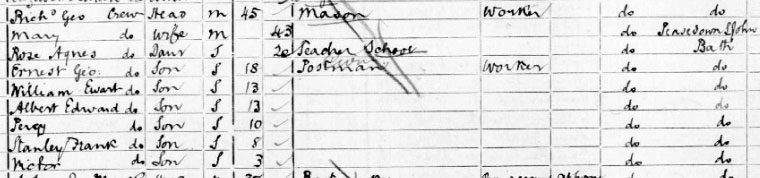 Richd Geo Crew Head M 45 Mason Worker do do
Mary do Wife M 43 do Peasedown S John
Roze Agnes do Daur S 20 Teacher School do Bath
Ernest Geo. do Son S 18 Postman Worker do do
William Ewart do Son S 13 do do
Albert Edward do Son S 13 do do
Percy do Son S 10 do do
Stanley Frank do Son S 8 do do
Victor do Son S 3 do do